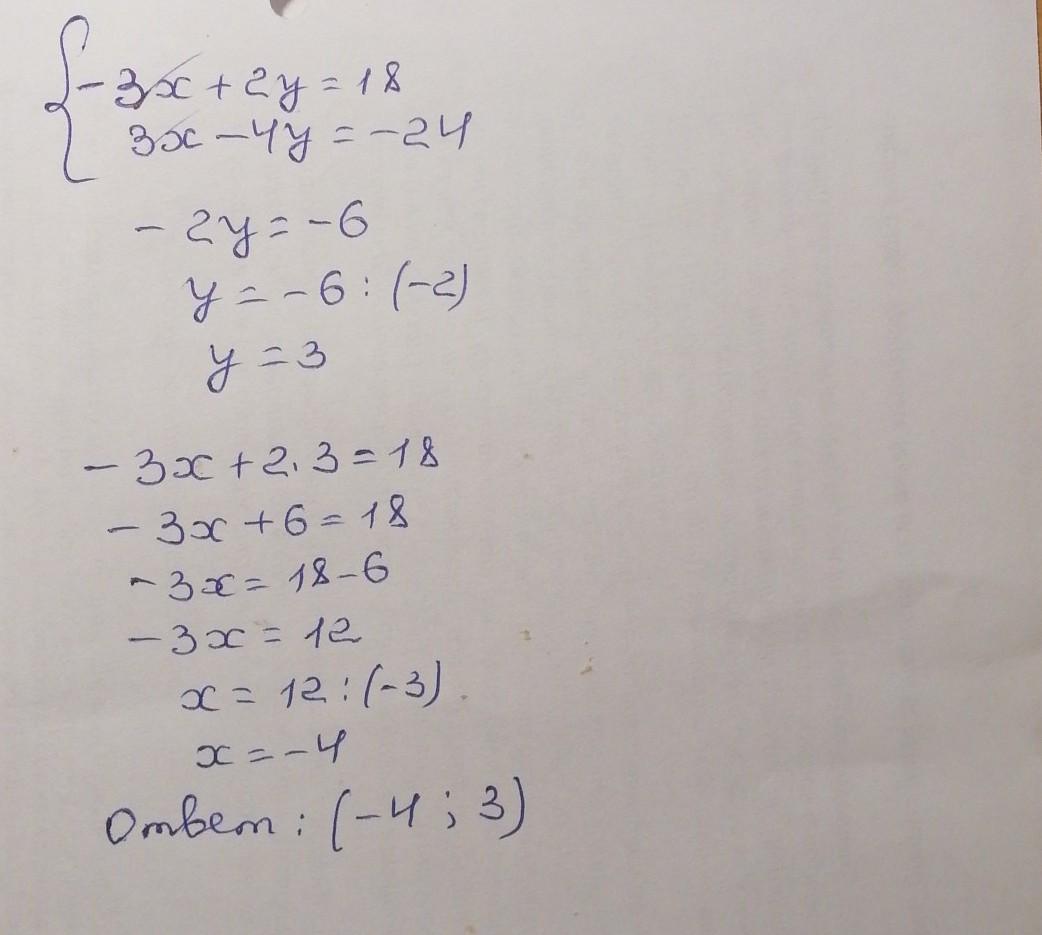 -3x + 2y = 18
3x - 4y = -24
- 2y = -6
y = -6 : (-2)
y = 3
-3x + 2 · 3 = 18
-3x + 6 = 18
-3x = 18 - 6
-3x = 12
x = 12 : (-3)
x = -4
Ответ: (-4 ; 3)